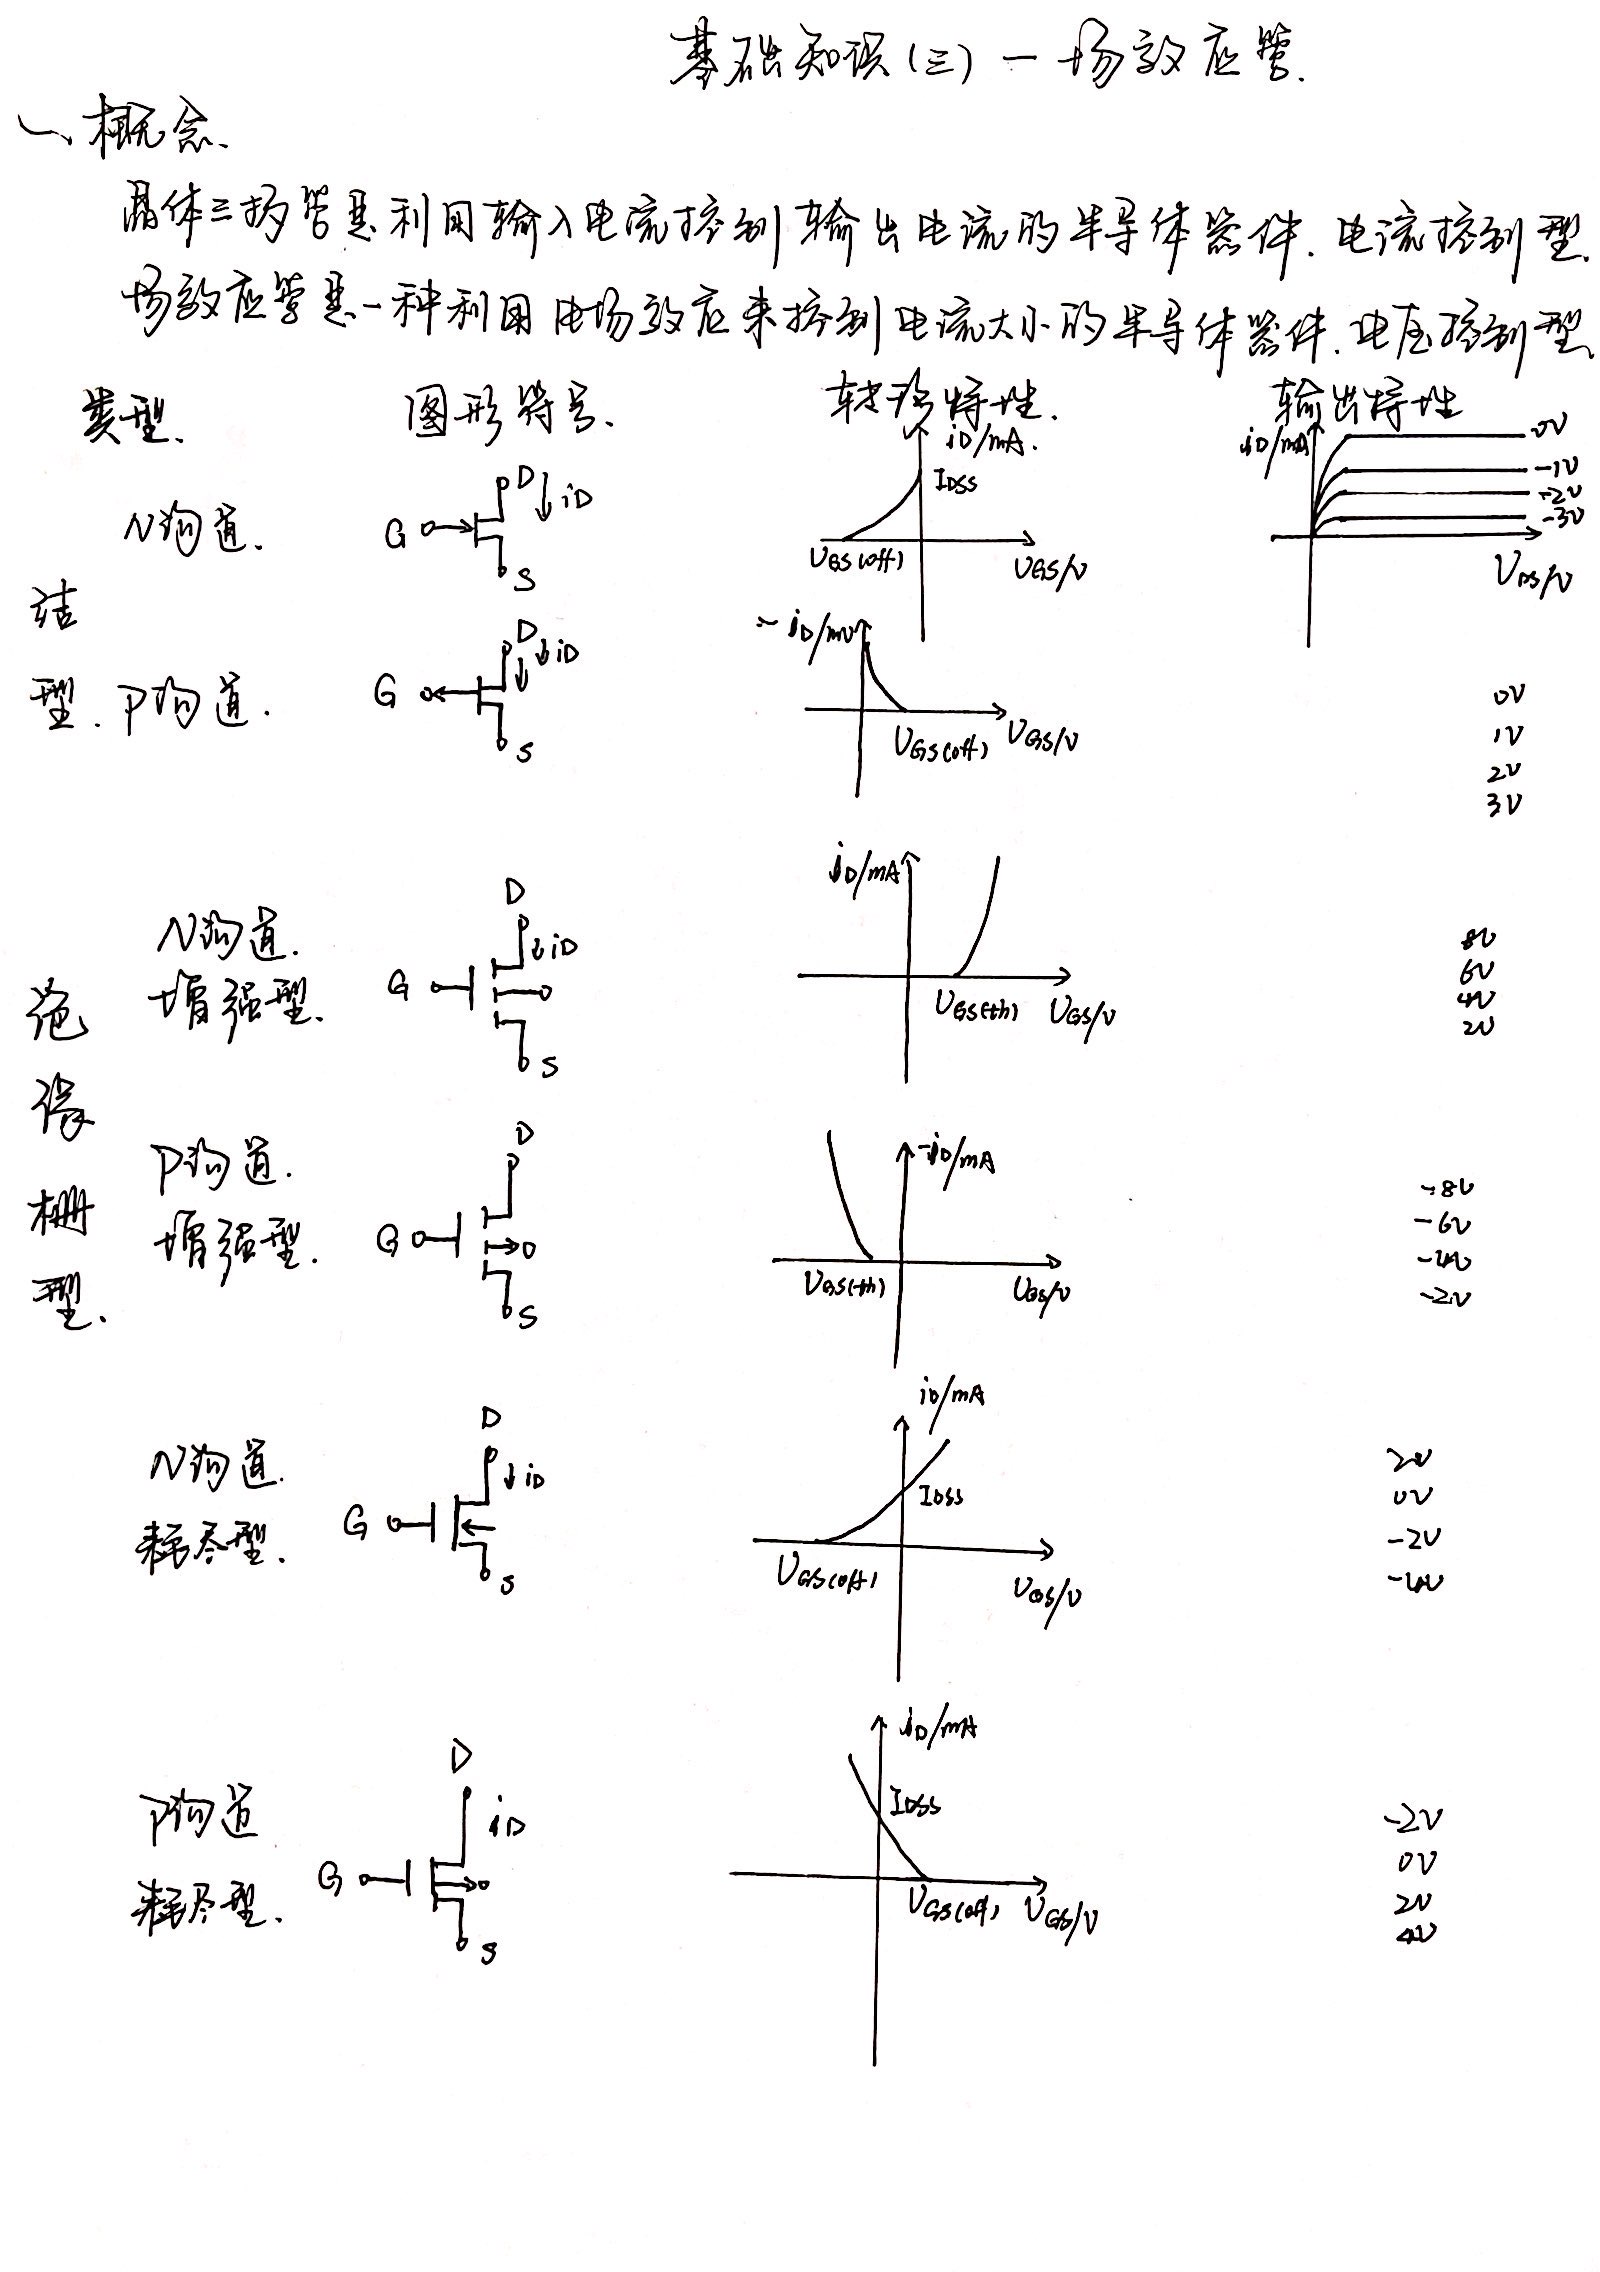 基础知识(三)一场效应管.
一、概念.
晶体三极管是利用输入电流控制输出电流的半导体器件.电流控制型.
场效应管是一种利用电场效应来控制电流大小的半导体器件.电压控制型
类型. 图形符号. 转移特性. 输出特性
结型.
N沟道. G D iD S iD/mA. IDSS UGS(off) UGS/V iD/mA 0V -1V -2V -3V UDS/V
P沟道. G D iD S -iD/mV UGS(off) UGS/V 0V 1V 2V 3V
绝缘栅型.
N沟道.增强型. G D iD S iD/mA UGS(th) UGS/V 8V 6V 4V 2V
P沟道.增强型. G D S -iD/mA UGS(th) UGS/V -8V -6V -4V -2V
N沟道.耗尽型. G D iD S iD/mA IDSS UGS(off) UGS/V 2V 0V -2V -4V
P沟道耗尽型. G D iD S iD/mA IDSS UGS(off) UGS/V -2V 0V 2V 4V